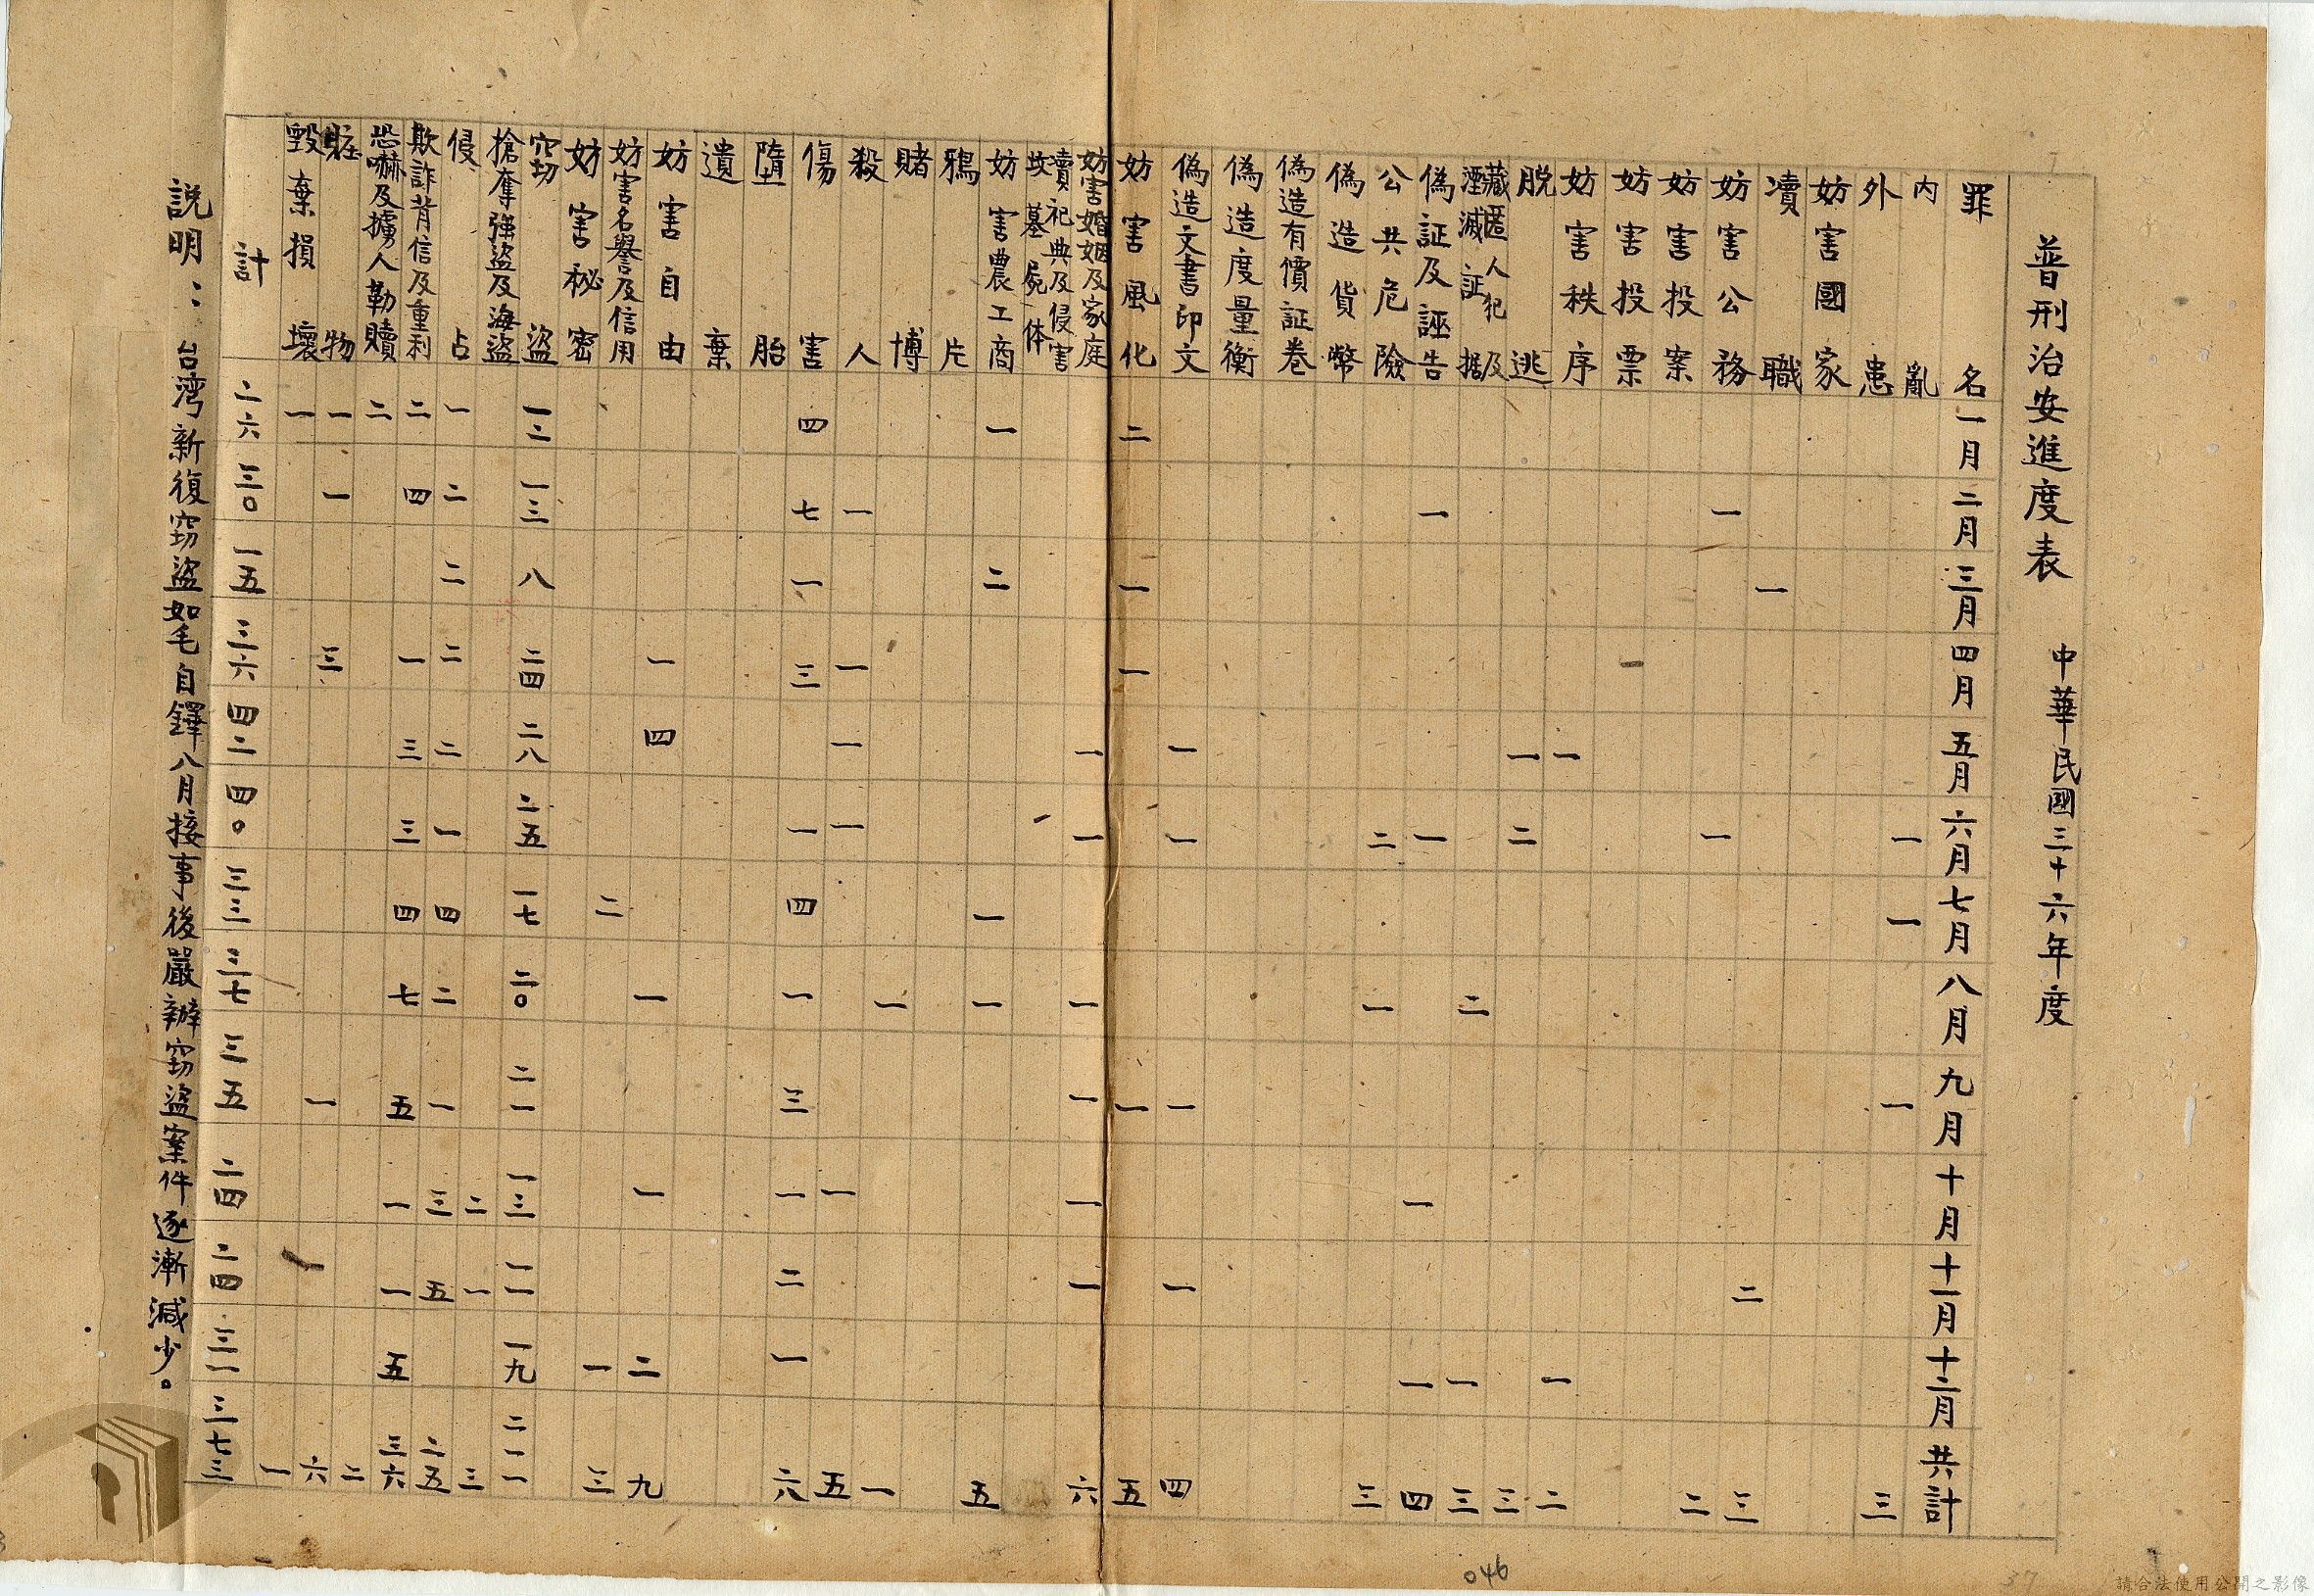 普刑治安進度表 中華民國三十六年度
罪名 一月 二月 三月 四月 五月 六月 七月 八月 九月 十月 十一月 十二月 共計
內亂 一 一 一 三
外患
妨害國家
瀆職 一 二 三
妨害公務 一 一 二
妨害投案
妨害投票
妨害秩序 一 一 二
脫逃 一 二 三
藏匿人犯及
湮滅証据 二 一 三
偽証及誣告 一 一 一 一 四
公共危險 二 一 三
偽造貨幣
偽造有價証卷
偽造度量衡
偽造文書印文 一 一 一 一 四
妨害風化 二 一 一 一 五
妨害婚姻及家庭 一 一 一 一 一 一 六
瀆祀典及侵害
坟墓屍体
妨害農工商 一 二 一 一 五
鴉片
賭博 一 一
殺人 一 一 一 一 一 五
傷害 四 七 一 三 一 四 一 三 一 二 一 六
墮胎
遺棄
妨害自由 一 四 一 一 二 九
妨害名譽及信用 二 一 三
妨害秘密
竊盜 一二 一三 八 二四 二八 二五 一七 二〇 二一 一三 一一 一九 二一一
搶奪強盜及海盜 二 一 三
侵占 一 二 二 二 二 一 四 二 一 三 五 二五
欺詐背信及重利 二 四 一 三 三 四 七 五 一 一 五 三六
恐嚇及擄人勒贖 二 二
賍物 一 一 三 一 六
毀棄損壞 一 一
計 二六 三〇 一五 三六 四二 四〇 三三 三七 三五 二四 二四 三一 三七三
説明：台湾新復窃盜如毛自鐸八月接事後嚴辦窃盜案件逐漸減少。
046
37
請合法使用公開之影像